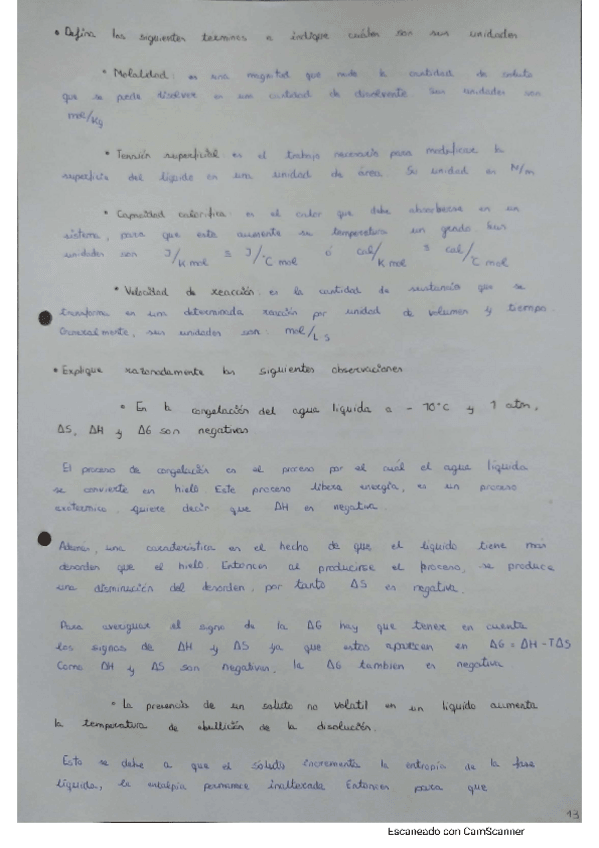 • Defina los siguientes terminos e indique cuáles son sus unidades
• Molalidad: es una magnitud que mide la cantidad de soluto
que se puede disolver en una cantidad de disolvente. Sus unidades son
mol/kg
• Tensión superficial: es el trabajo necesario para modificar la
superficie del líquido en una unidad de área. Su unidad es N/m
• Capacidad calorífica: es el calor que debe absorberse en un
sistema, para que este aumente su temperatura un grado. Sus
unidades son J/K mol s J/°C mol ó cal/K mol s cal/°C mol
• Velocidad de reacción: es la cantidad de sustancia que se
transforma en una determinada reacción por unidad de volumen y tiempo.
Generalmente, sus unidades son: mol/L s
• Explique razonadamente las siguientes observaciones
• En la congelación del agua líquida a - 10°C y 1 atm,
ΔS, ΔH y ΔG son negativas
El proceso de congelación es el proceso por el cuál el agua líquida
se convierte en hielo. Este proceso libera energía, es un proceso
exotermico, quiere decir que ΔH es negativa.
Además, una característica es el hecho de que el líquido tiene más
desorden que el hielo. Entonces al producirse el proceso, se produce
una disminución del desorden, por tanto ΔS es negativa.
Para averiguar el signo de la ΔG hay que tener en cuenta
los signos de ΔH y ΔS ya que estos aparecen en ΔG = ΔH - TΔS
Como ΔH y ΔS son negativas, la ΔG también es negativa
• La presencia de un soluto no volatil en un líquido aumenta
la temperatura de ebullición de la disolución.
Esto se debe a que el soluto incrementa la entropía de la fase
líquida, la entalpia permanece inalterada. Entonces para que
13
Escaneado con CamScanner